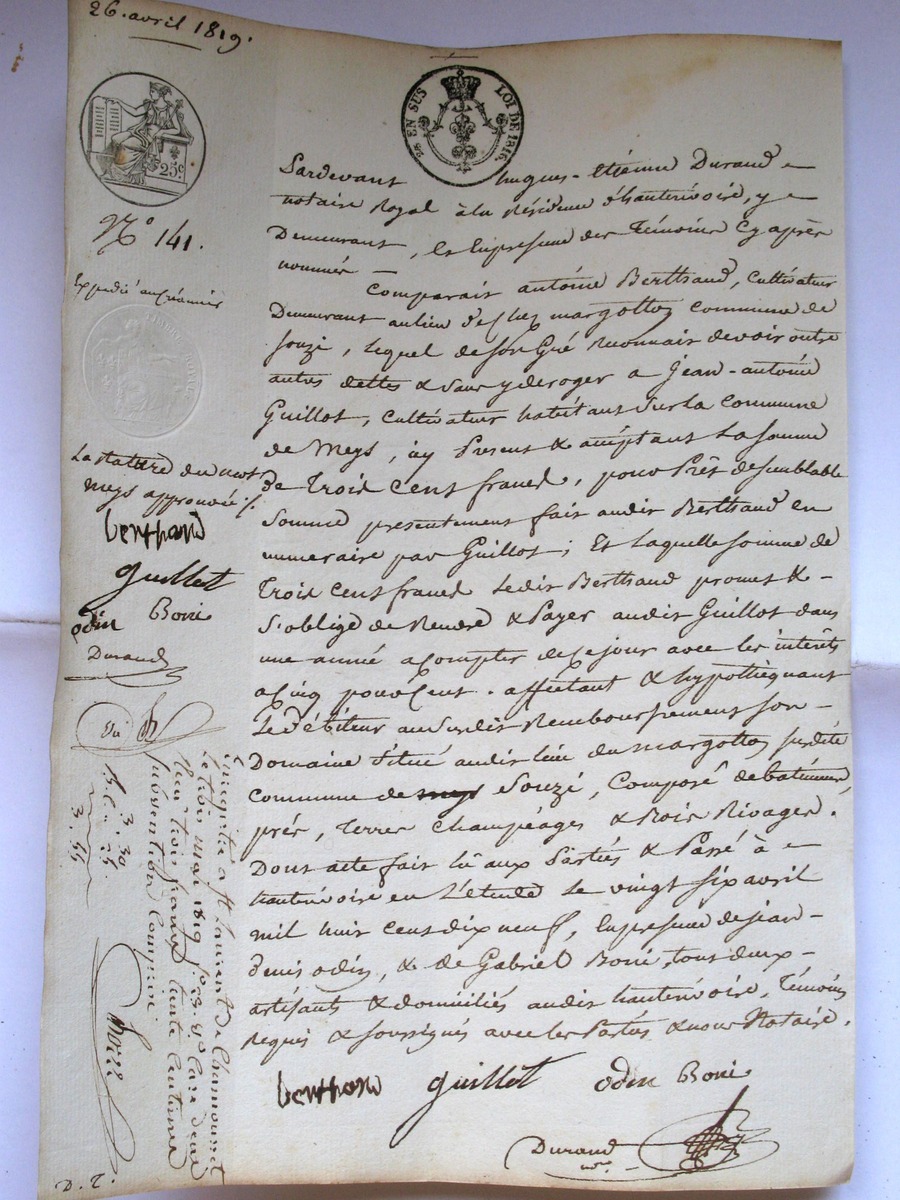 26. avril 1819.
25 EN SUS LOI DE 1816.
25.c
N.o 141.
Expédié au Créancier
La rature du mot
meys approuvée ./.
bertrand
guillot
odin Boni
Durand
Pardevant hugues-étienne Durand
notaire Royal à la Résidence d'hautenvoire, y
Demeurant, En presence des Témoins Cy après
nommés
Comparait antoine Berthaud, Cultivateur
Demeurant au lieu de Chez margottoz commune de
souzi, lequel de son Gré Reconnait devoir outre
autres dettes & sans y deroger a Jean-antoine
Guillot, Cultivateur habitant sur la Commune
de Meys, icy Present & acceptant La somme
De Trois Cent francs, pour Prêt de semblable
Somme presentement fait audit Berthaud en
numeraire par Guillot; Et laquelle somme de
Trois Cent francs Ledit Berthaud promet &
s'oblige de Rendre & Payer audit Guillot dans
une année a Compter de Ce jour avec les interêts
a Cinq pour Cent. affectant & hypothequant
Le Débiteur au susdit Remboursement son
Domaine situé audit lieu du margottoz susdite
commune de meys Souzi, Composé de batiments,
prés, terres Champéages & Bois Rivages.
Dont acte fait lû aux Parties & Passé à
hautenvoire en L'étude Le vingt six avril
mil huit Cent dix neuf, En presence de jean
denis odin, & de Gabriel Boni, tous deux
artisans & domiciliés audit hautenvoire, Témoins
Requis & soussignés avec les Parties & nous Notaire.
bertrand guillot odin Boni
Durand
Enregistré a St Laurent de Chamousset
Le trois mai 1819
trois francs trente centimes
subvention Comprise
3. 30
3. 55
D. 2.